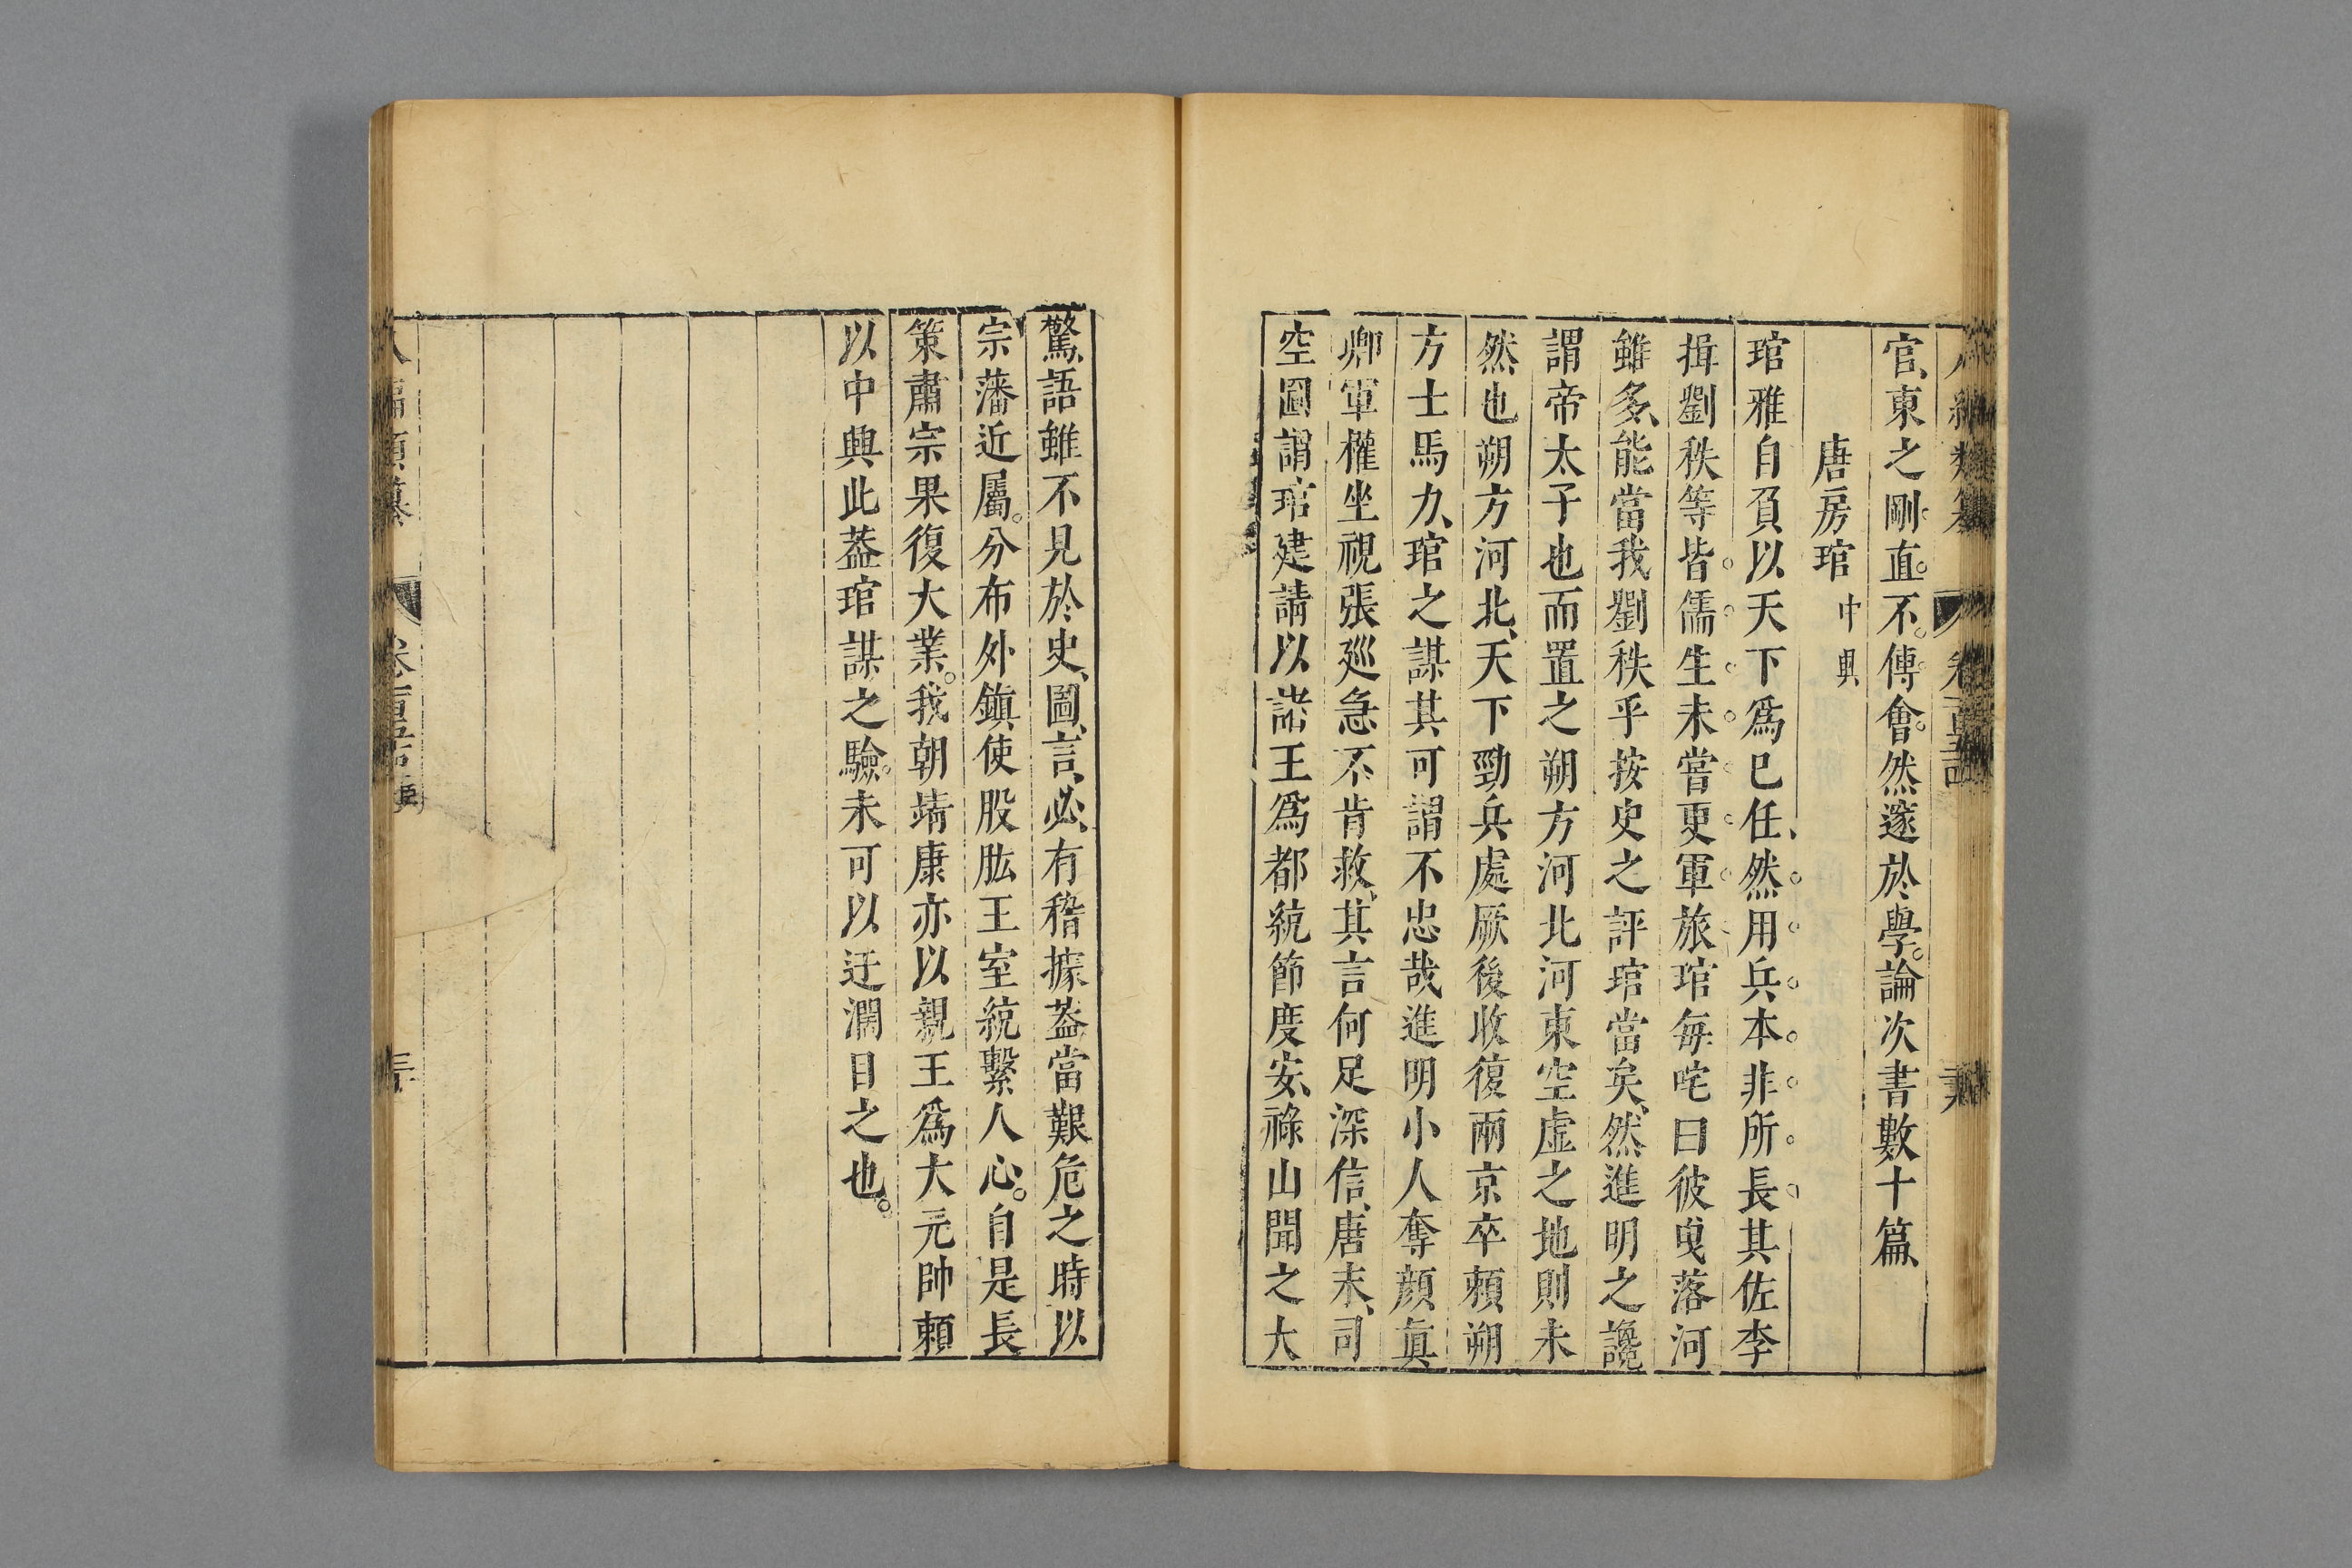 官東之剛直不傅會然邃於學論次書數十篇
唐房琯 中興
琯雅自負以天下爲已任然用兵本非所長其佐李
揖劉秩等皆儒生未嘗更軍旅琯每咤曰彼曳落河
雖多能當我劉秩乎按史之評琯當矣然進明之讒
謂帝太子也而置之朔方河北河東空虛之地則未
然也朔方河北天下勁兵處厥後收復兩京卒頼朔
方士馬力琯之謀其可謂不忠哉進明小人奪顏眞
卿軍權坐視張廵急不肯救其言何足深信唐末司
空圖謂琯建請以諸王爲都統節度安祿山聞之大
驚語雖不見於史圖言必有稽據葢當艱危之時以
宗藩近屬分布外鎮使股肱王室統繫人心自是長
策肅宗果復大業我朝靖康亦以親王爲大元帥頼
以中興此葢琯謀之驗未可以迂濶目之也